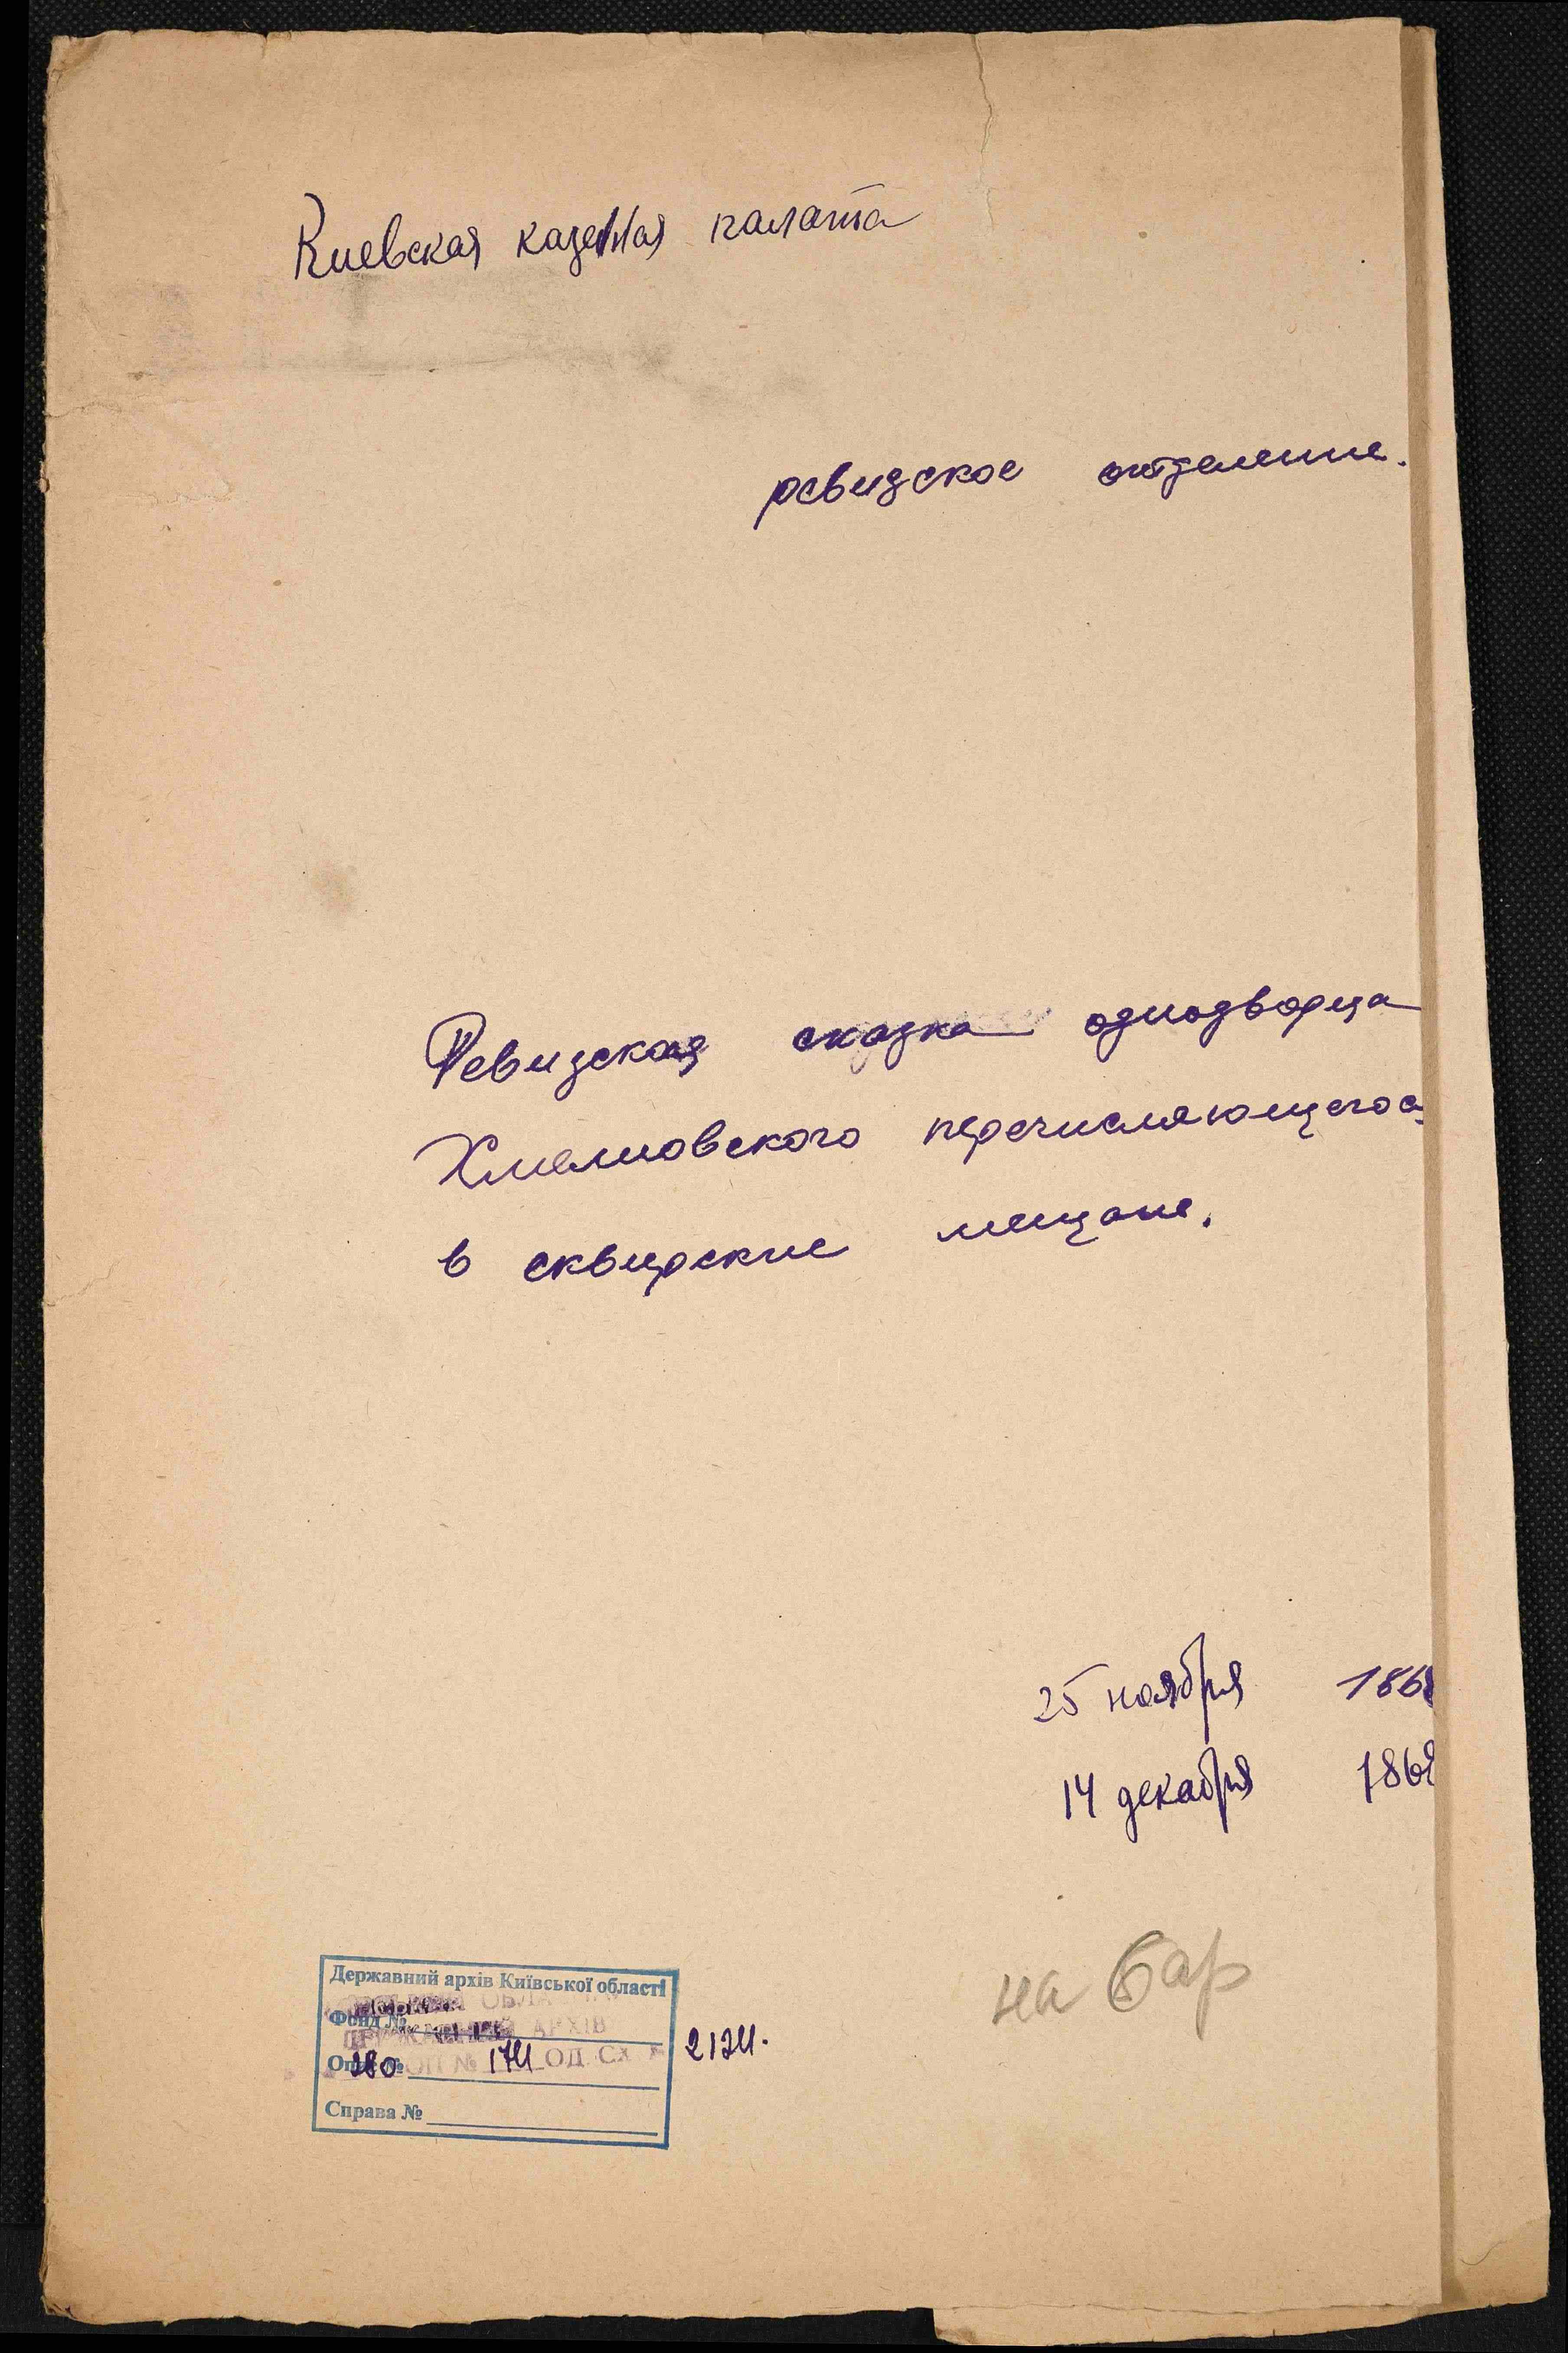 Киевская казенная палата
ревизское отделение.
Ревизская сказка однодворца
Хмелиовского перечисляющегося
в сквирские мещане.
25 ноября 186
14 декабря 186
на 6 ар
Державний архів Київської області
Фонд №
АРХІВ
280 ОП № 174 ОД. СХ
2124.
Справа №